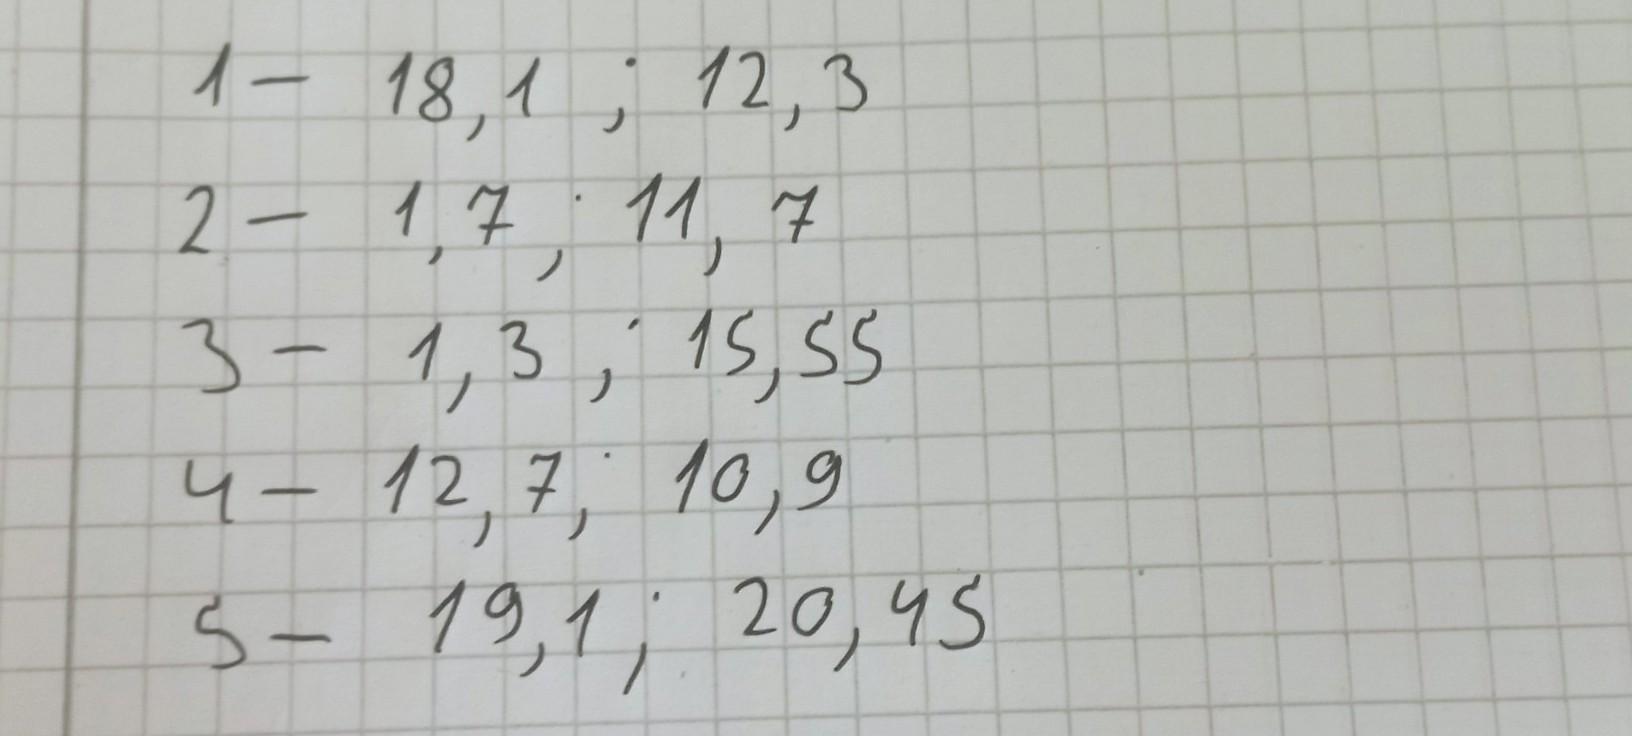 1 - 18,1 ; 12,3
2 - 1,7 ; 11,7
3 - 1,3 ; 15,55
4 - 12,7 ; 10,9
5 - 19,1 ; 20,45